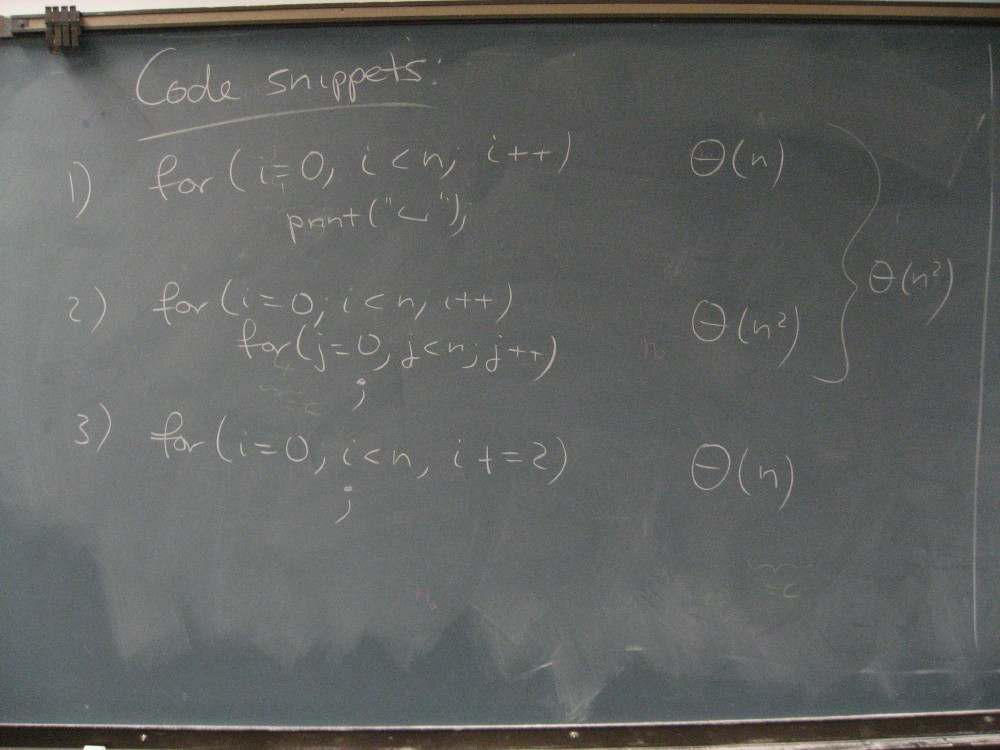 Code snippets:
1) for (i=0; i<n; i++) Θ(n)
print("
");
2) for(i=0; i<n, i++)
for(j=0, j<n; j++) Θ(n²)
;
Θ(n²)
3) for (i=0, i<n, i+=2) Θ(n)
;
n₀
=c
n₀
=c